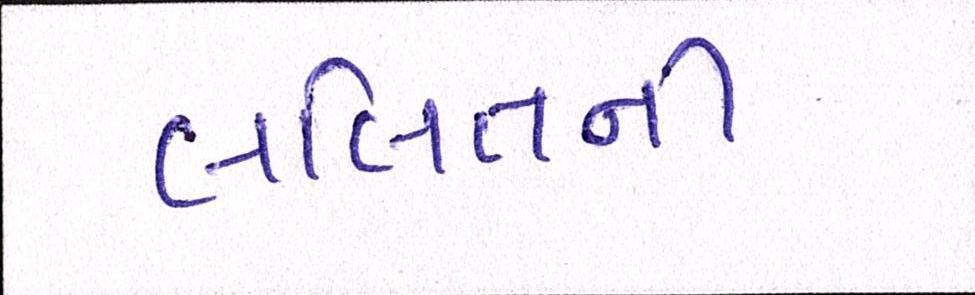 લલિતની